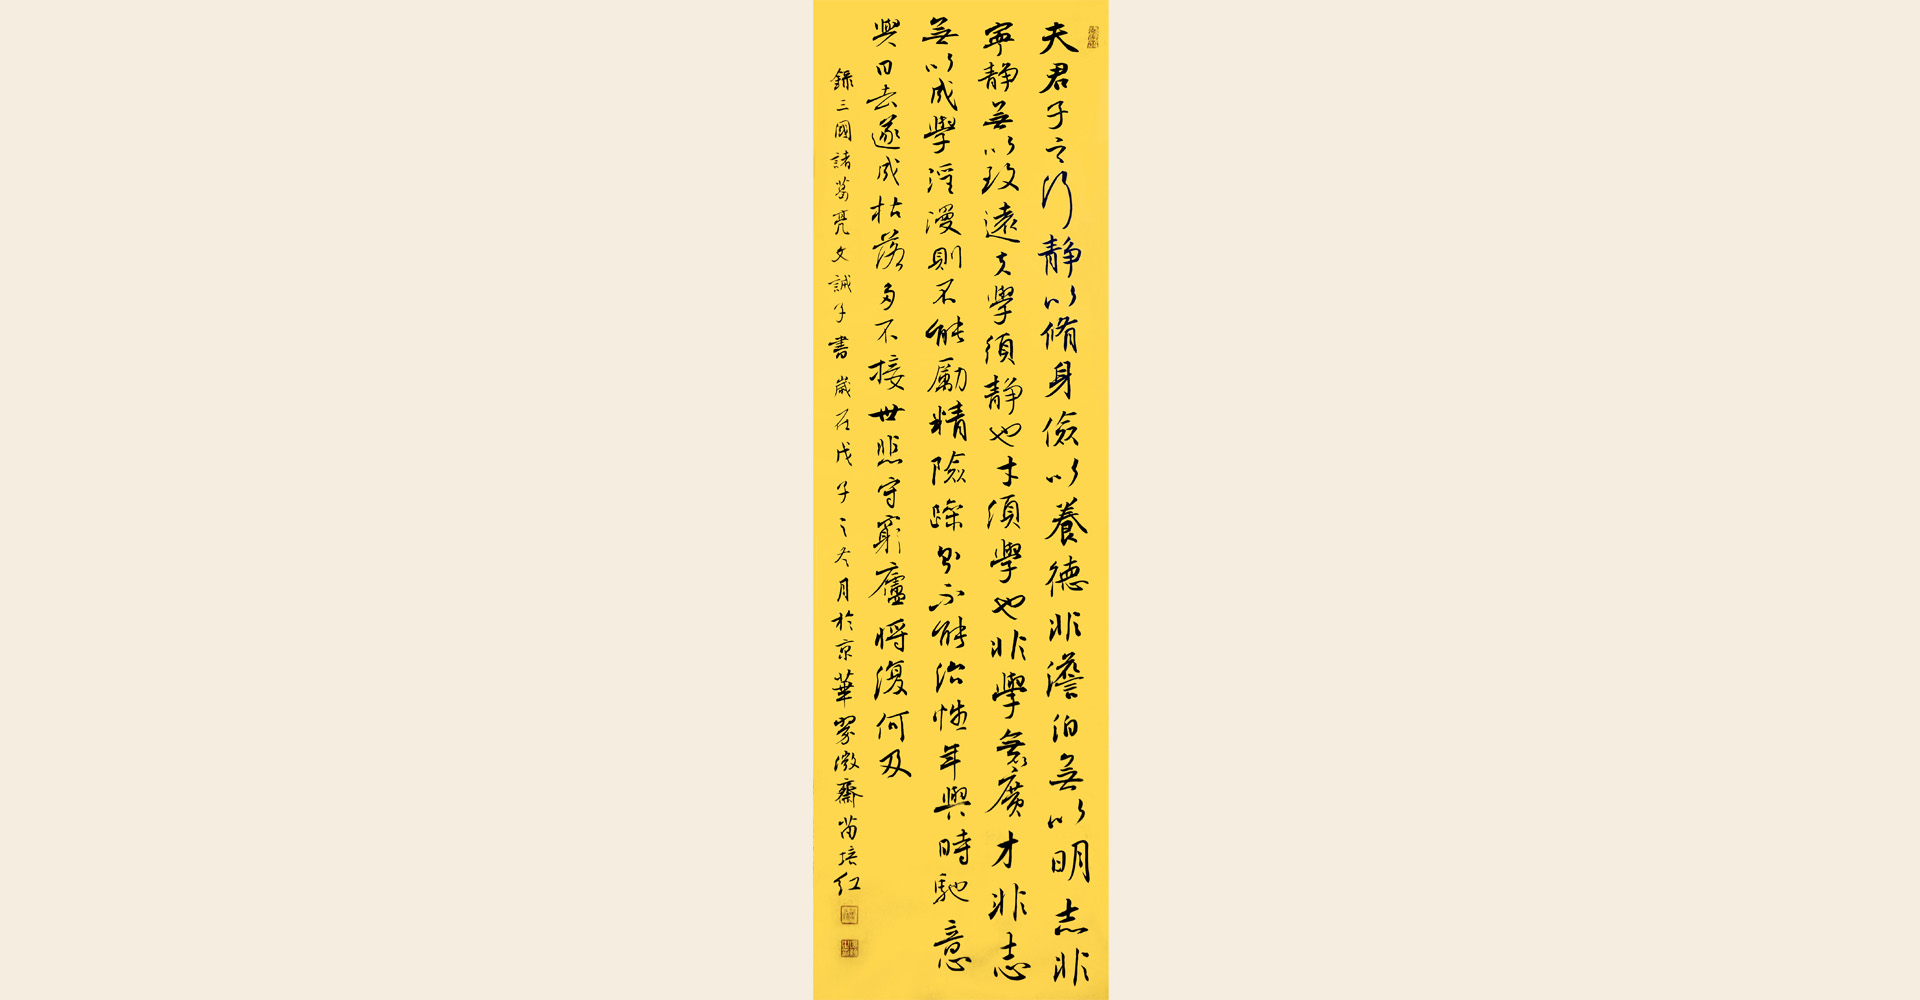 夫君子之行静以脩身儉以養德非澹泊無以明志非
寧静無以致遠夫學須静也才須學也非學無以廣才非志
無以成學淫漫則不能勵精險躁則不能治性年與時馳意
與日去遂成枯落多不接世悲守窮廬將復何及
録三國諸葛亮文誡子書 歲在戊子之冬月於京華翠微齋苗培红